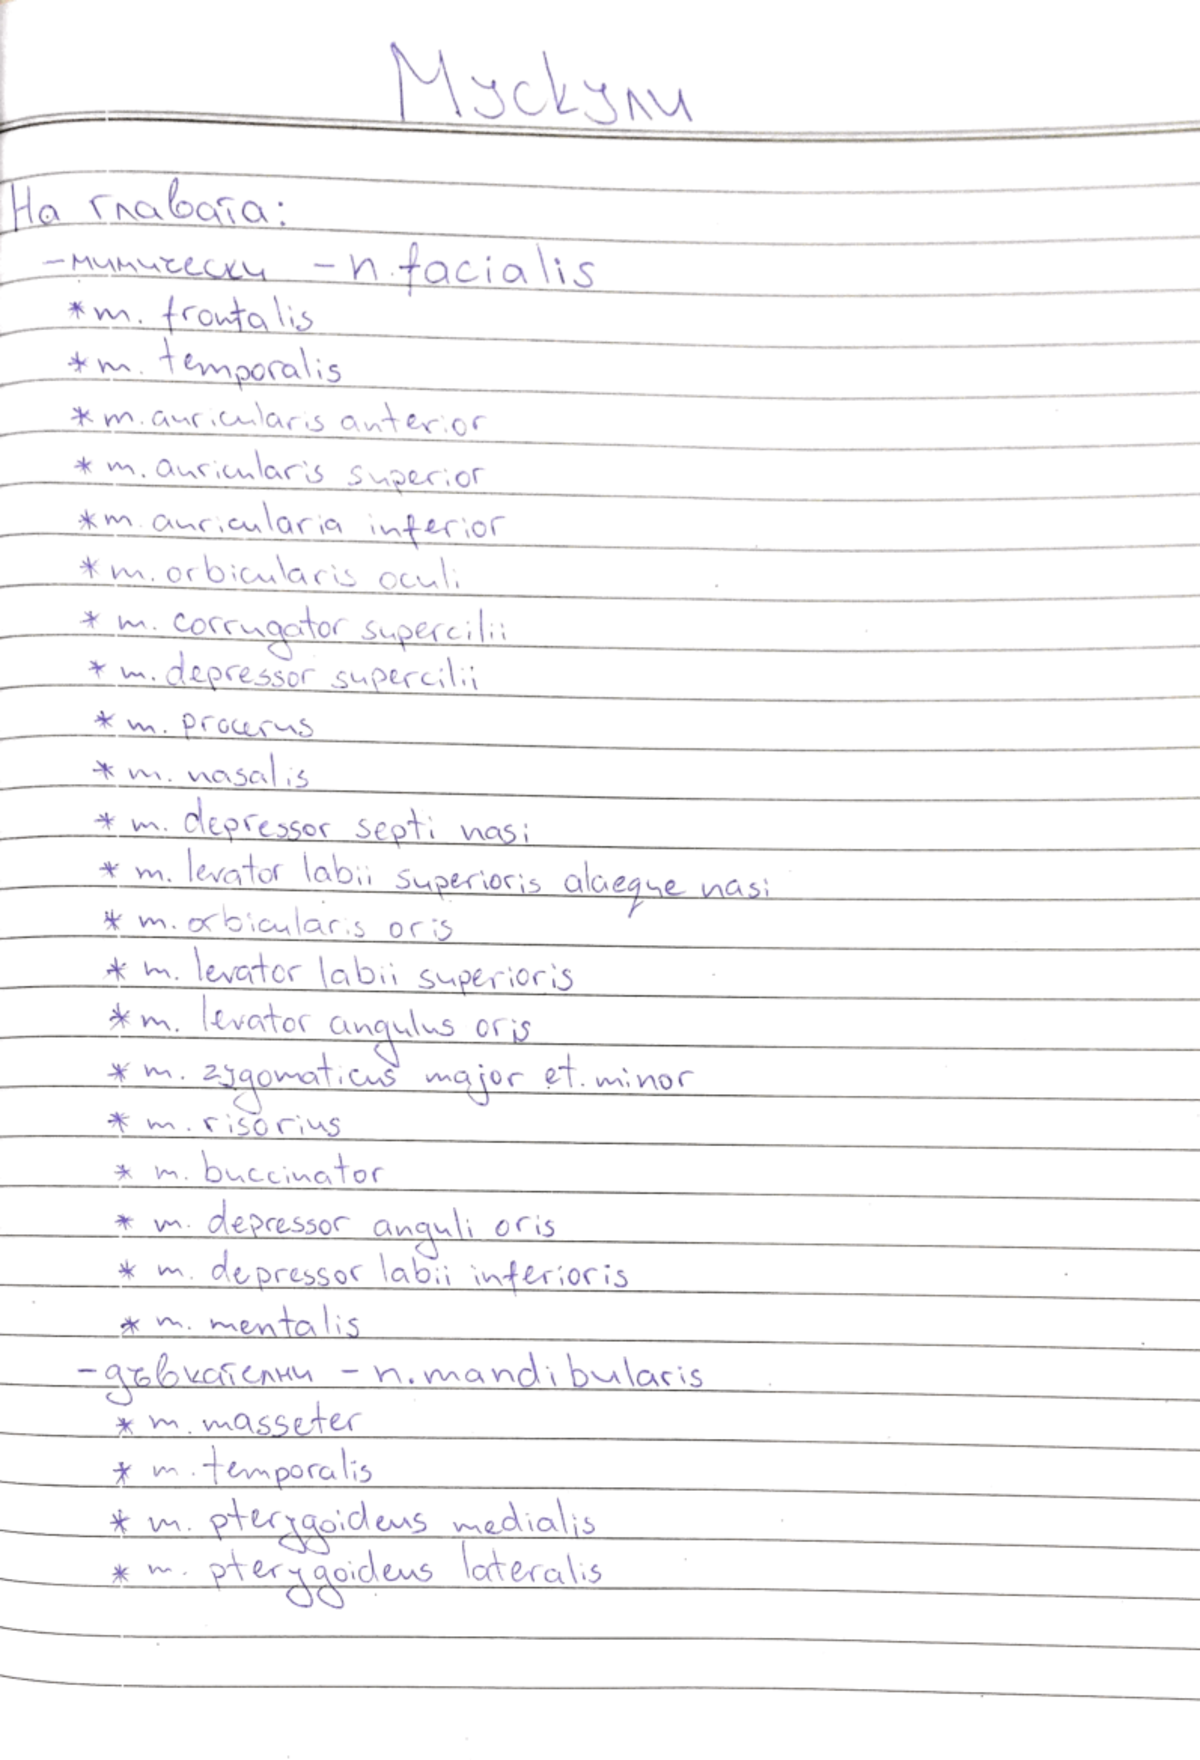 Мускули
На главата:
- мимически - n. facialis
* m. frontalis
* m. temporalis
* m. auricularis anterior
* m. auricularis superior
* m. auricularia inferior
* m. orbicularis oculi
* m. corrugator supercilii
* m. depressor supercilii
* m. procerus
* m. nasalis
* m. depressor septi nasi
* m. levator labii superioris alaeque nasi
* m. orbicularis oris
* m. levator labii superioris
* m. levator angulus oris
* m. zygomaticus major et. minor
* m. risorius
* m. buccinator
* m. depressor anguli oris
* m. depressor labii inferioris
* m. mentalis
- дъвкателни - n. mandibularis
* m. masseter
* m. temporalis
* m. pterygoideus medialis
* m. pterygoideus lateralis